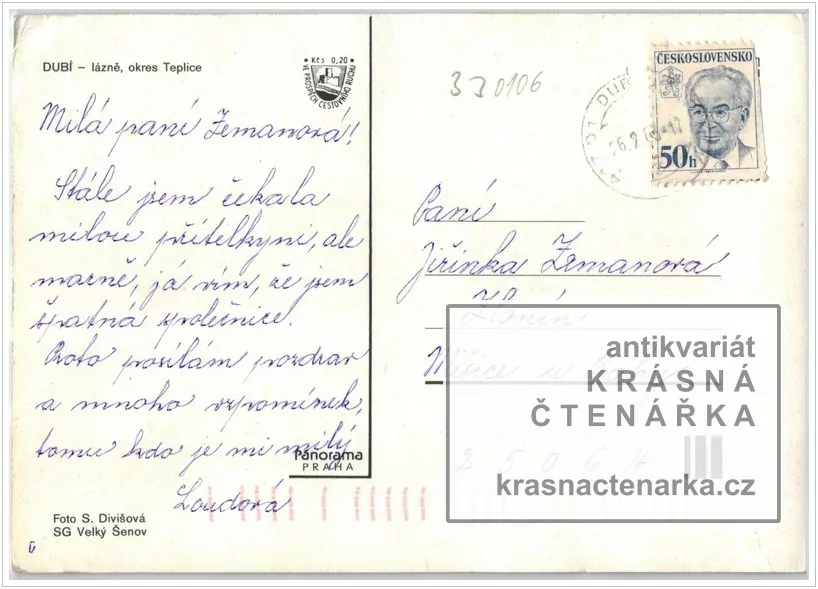 DUBÍ – lázně, okres Teplice
Kčs 0,20
VE PROSPĚCH CESTOVNÍHO RUCHU
330106
ČESKOSLOVENSKO
50h
DUBÍ
26.2
Milá paní Zemanová!
Stále jsem čekala
milou přítelkyni, ale
marně, já vím, že jsem
špatná společnice.
Proto posílám pozdrav
a mnoho vzpomínek,
tomu kdo je mi milý
Loudová
Panorama
PRAHA
Foto S. Divišová
SG Velký Šenov
Paní
Jiřinka Zemanová
25064
antikvariát
KRÁSNÁ
ČTENÁŘKA
krasnactenarka.cz